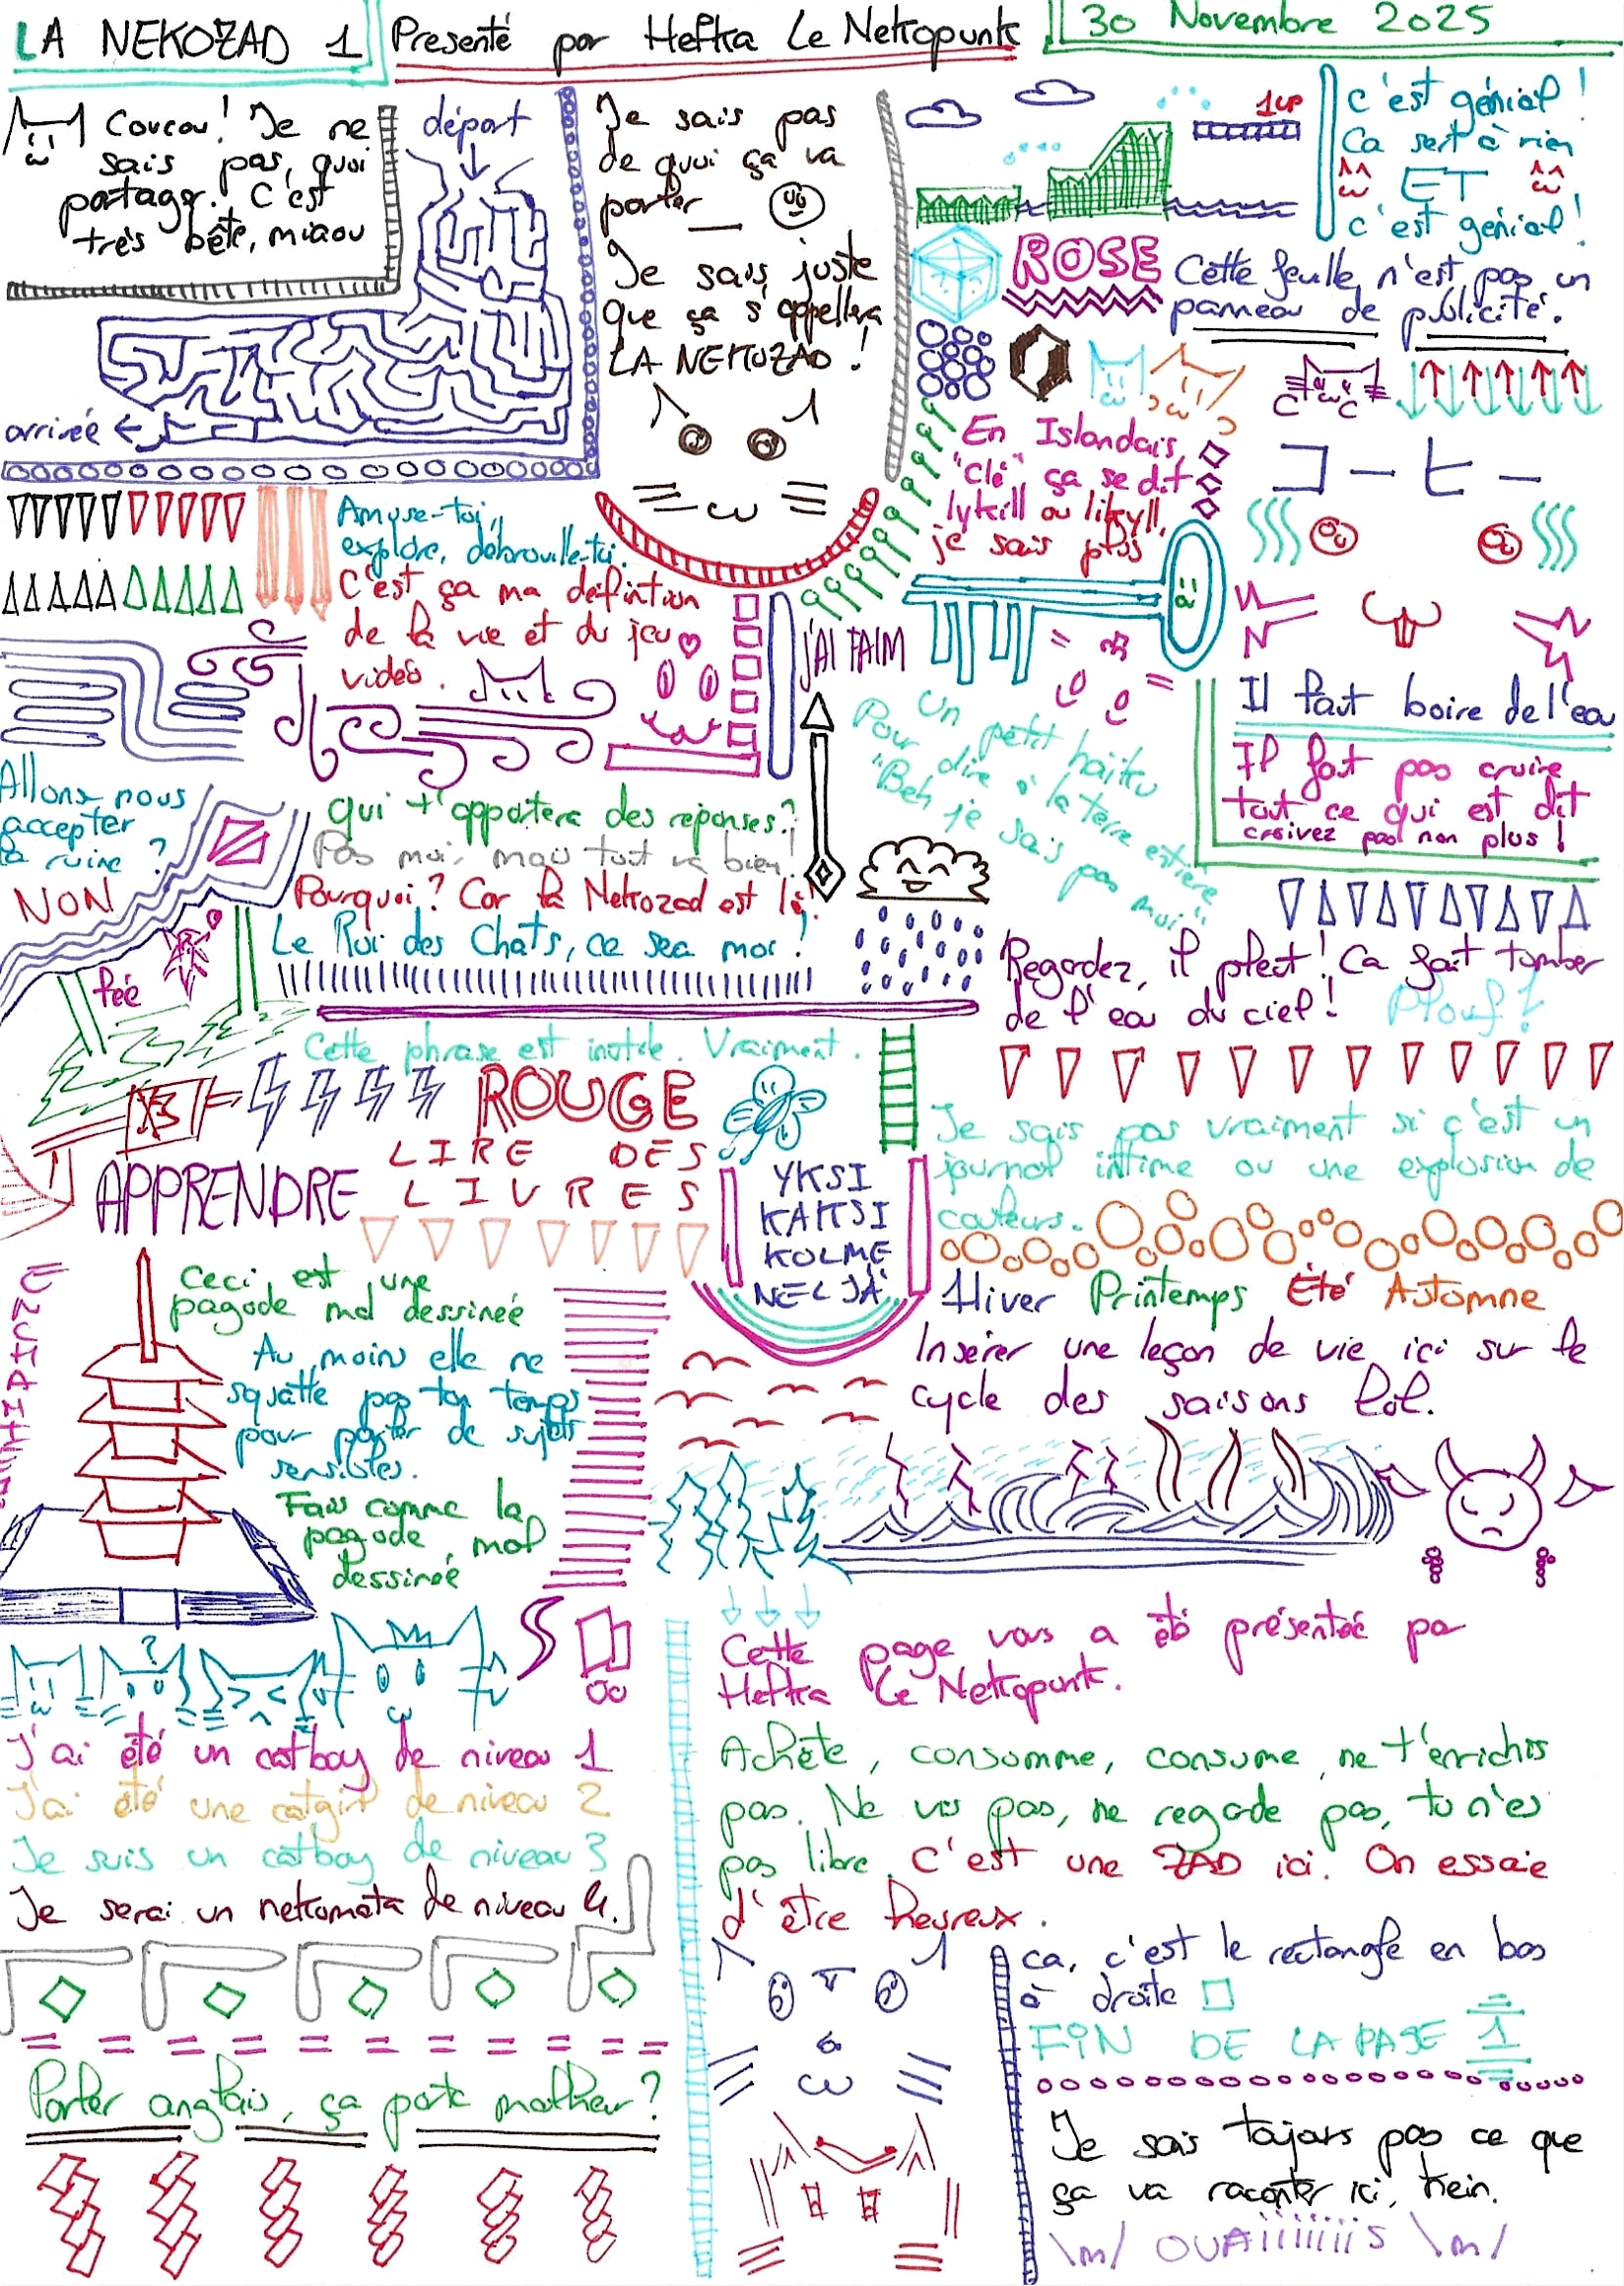 LA NEKOZAD 1
Presenté par Hefka Le Nekopunk
30 Novembre 2025
Coucou! Je ne
sais pas, quoi
partager. C'est
très bête, miaou
départ
arrivée
Je sais pas
de quoi ça va
parler
Je sais juste
que ça s'appellera
LA NEKOZAD !
1UP
C'est génial !
Ca sert à rien
ET
c'est génial !
ROSE
Cette feuille n'est pas un
panneau de publicité.
En Islandais,
"clé", ça se dit
lykill ou likyll,
je sais plus
コーヒー
Amuse-toi,
explore, débrouille-toi.
C'est ça ma défintion
de la vie et du jeu
vidéo.
J'AI FAIM
Un petit haïku
Pour dire à la terre entière
"Beh je sais pas moi"
Il faut boire de l'eau
Il fait pas cruire
tout ce qui est dit
croivez pad non plus !
Allons nous
accepter
la ruine ?
NON
fée
qui t'apportera des réponses?
Pas moi, mais tout va bien!
Pourquoi? Car la Nekozad est là!
Le Roi des Chats, ce sera moi!
Regardez, il pleut! Ca fait tomber
de l'eau du ciel!
Plouf!
Cette phrase est inutile. Vraiment.
ROUGE
APPRENDRE
LIRE DES
LIVRES
YKSI
KAKSI
KOLME
NELJÄ
Je sais pas vraiment si c'est un
journal intime ou une explosion de
couleurs.
Hiver Printemps Été Automne
Insérer une leçon de vie ici sur le
cycle des saisons lol.
Ceci est une
pagode mal dessineé
Au moins elle ne
squatte pas ton temps
pour parler de sujets
sensibles.
Fais comme la
pagode mal
dessineé
J'ai été un catboy de niveau 1
J'ai été une catgirl de niveau 2
Je suis un catboy de niveau 3
Je serai un nekomata de niveau 4.
Parler anglais, ça porte malheur?
Cette page vous a été présentée par
Hefka Le Nekopunk.
Achète, consomme, consume, ne t'enrichis
pas. Ne vis pas, ne regarde pas, tu n'es
pas libre. C'est une ZAD ici. On essaie
d'être heureux.
ca, c'est le rectangle en bas
à droite
FIN DE LA PAGE 1
Je sais toujours pas ce que
ça va raconter ici, hein.
\m/ OUAiiiiiiiiS \m/